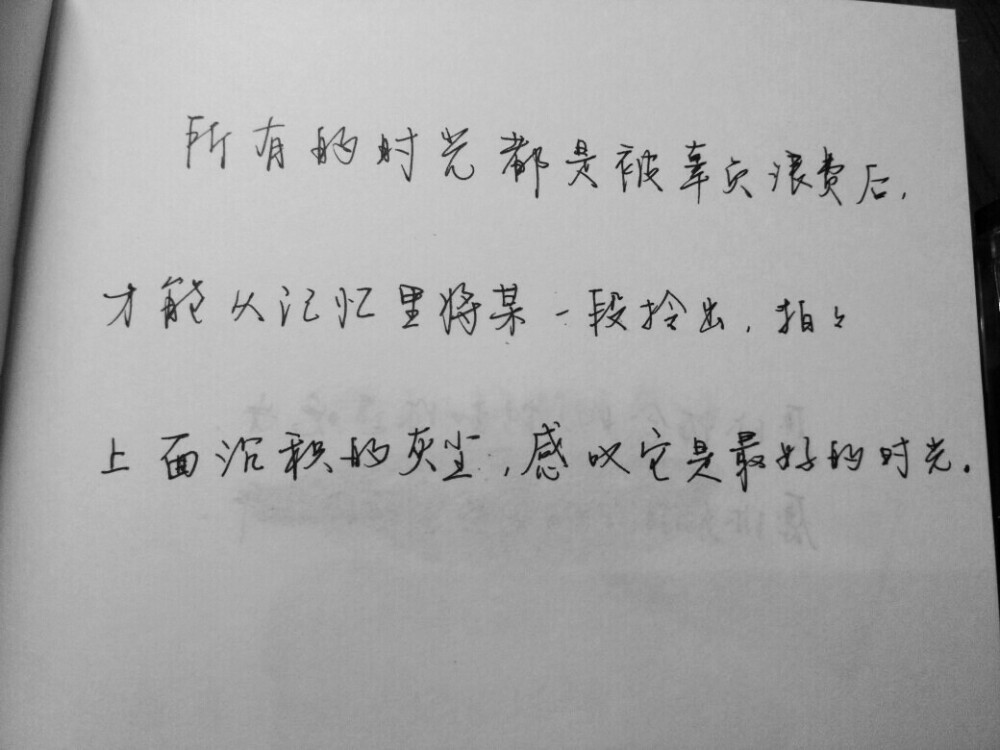 所有的时光都是被辜负浪费后，
才能从记忆里将某一段拎出，拍々
上面沉积的灰尘，感叹它是最好的时光.